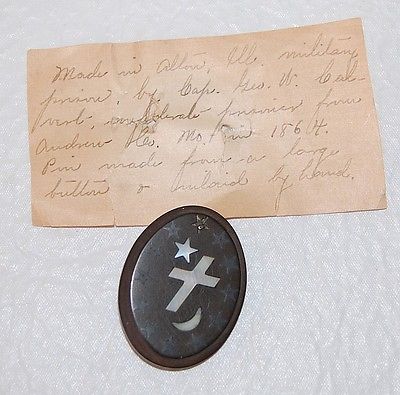 Made in Alton, Ill. military
prison, by Cap. Geo. W. Cal-
vert, confederate prisoner from
Andrew Co. Mo. in 1864.
Pin made from a large
button & inlaid by hand.